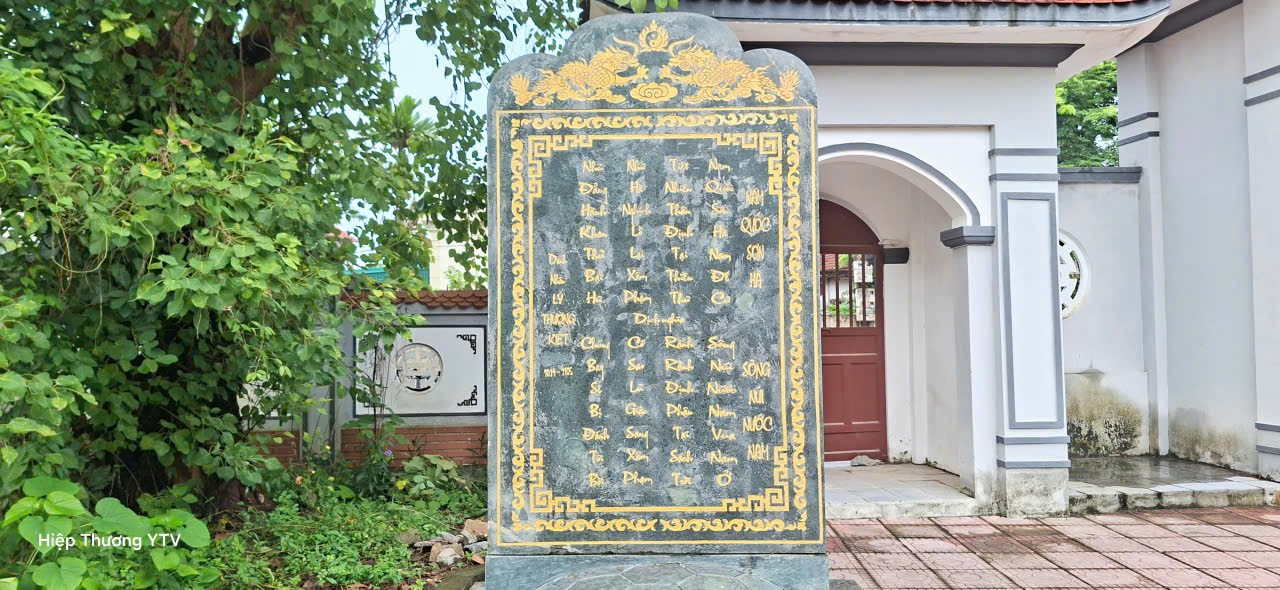 NAM QUỐC SƠN HÀ
Nam Quốc Sơn Hà Nam Đế Cư
Tiệt Nhiên Phân Định Tại Thiên Thư
Như Hà Nghịch Lỗ Lai Xâm Phạm
Nhữ Đẳng Hành Khan Thủ Bại Hư
Dịch nghĩa
SÔNG NÚI NƯỚC NAM
Sông Núi Nước Nam Vua Nam Ở
Rành Rành Định Phận Tại Sách Trời
Cớ Sao Lũ Giặc Sang Xâm Phạm
Chúng Bay Sẽ Bị Đánh Tơi Bời
LÝ THƯỜNG KIỆT
1019 - 1105
Hiệp Thương YTV